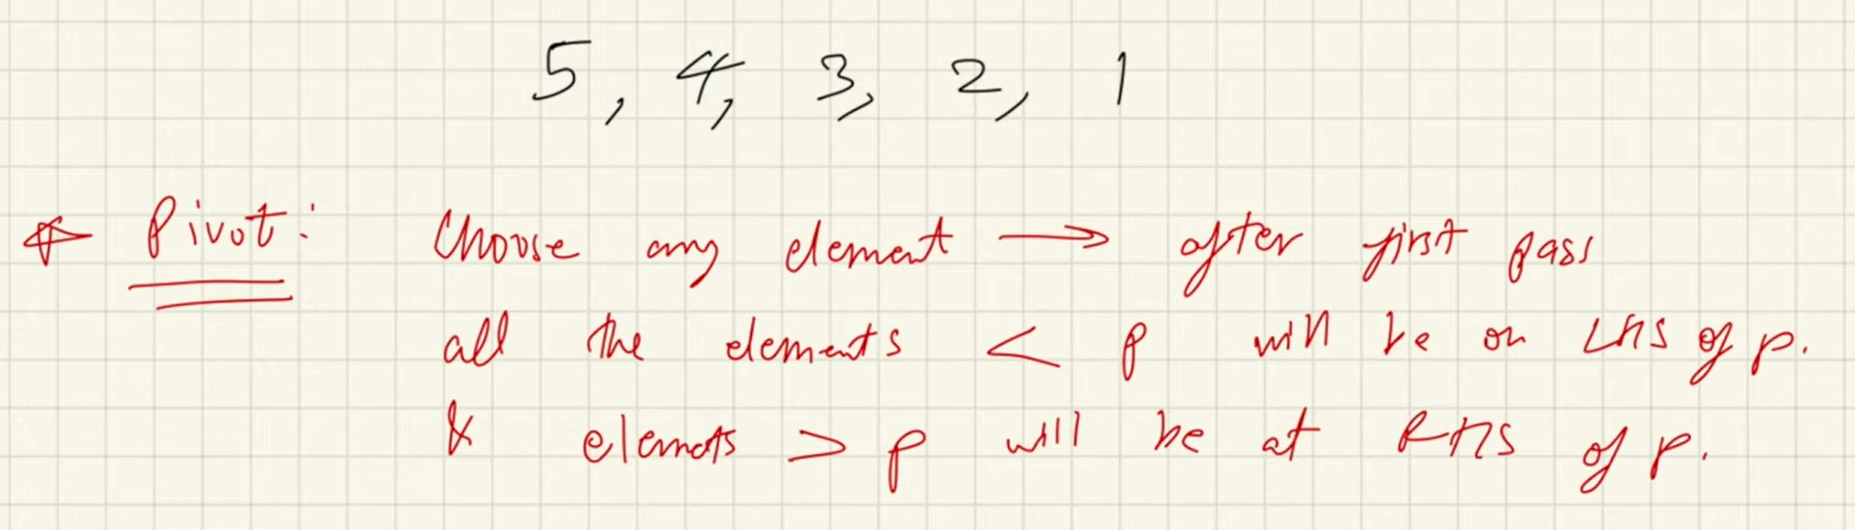 5, 4, 3, 2, 1
* Pivot: Choose any element → after first pass
all the elements < p will be on LHS of p.
& elemets > p will be at RHS of p.